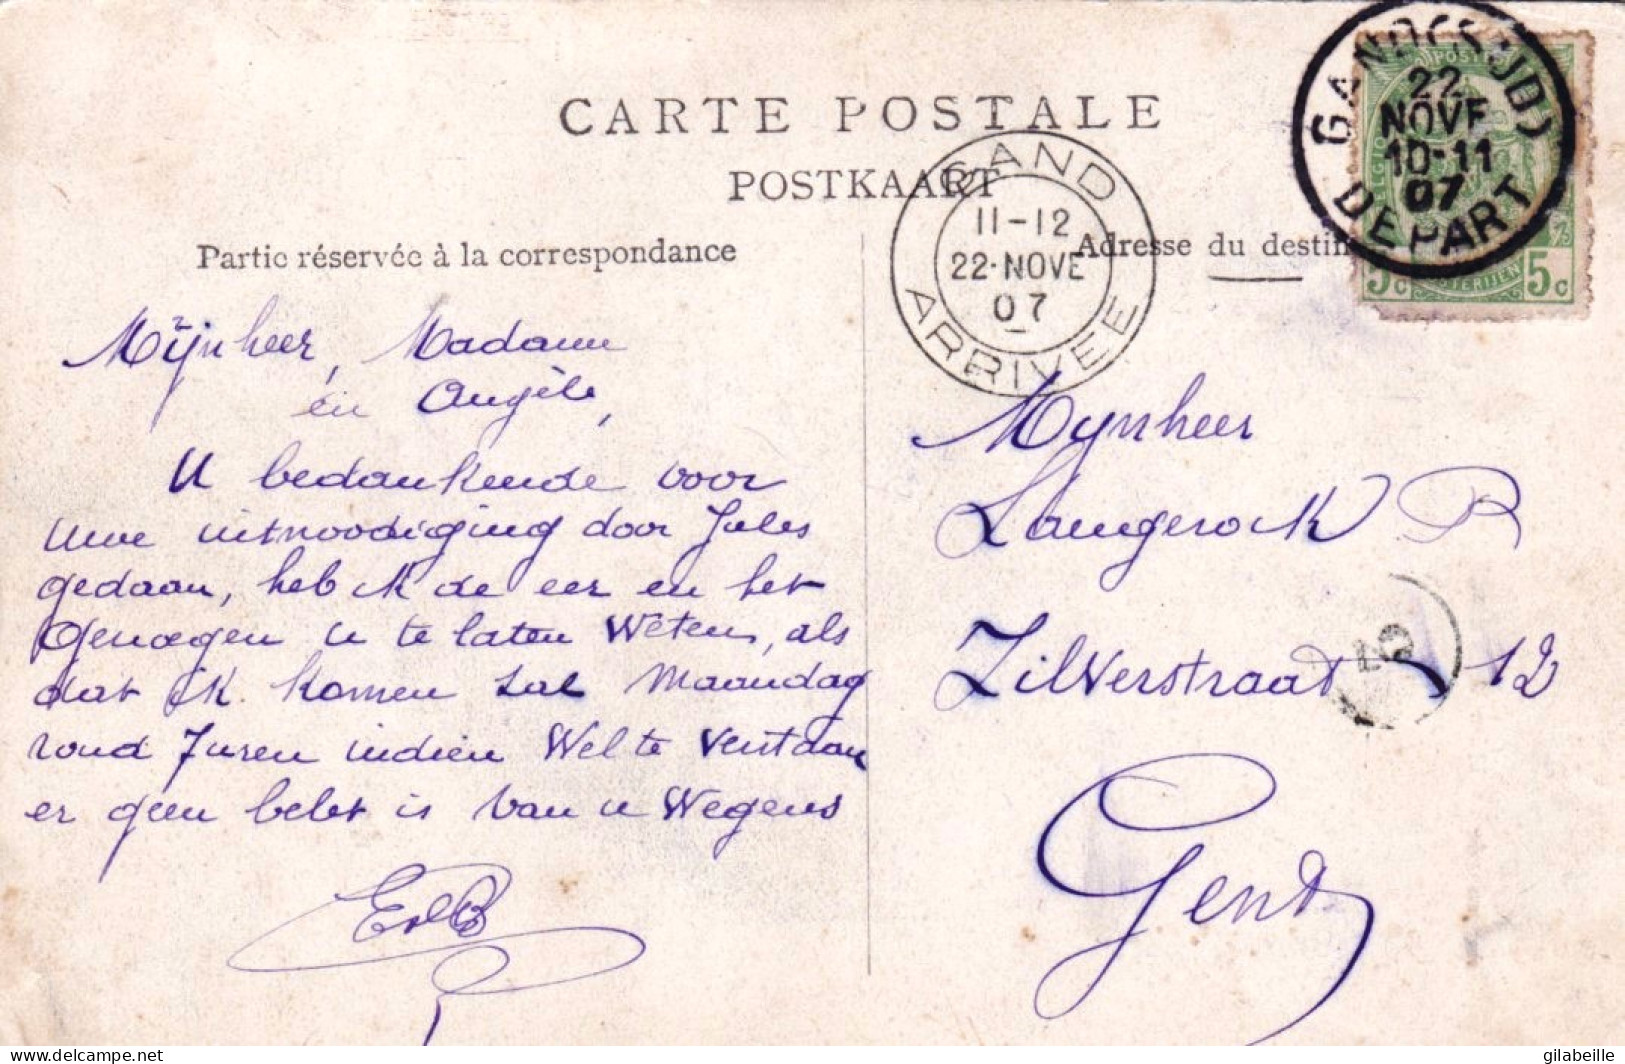 CARTE POSTALE
POSTKAART
Partie réservée à la correspondance
Adresse du destin
GAND (SUD)
22
NOVE
10-11
07
DEPART
POSTE
5c 5c
GAND
11-12
22·NOVE
07
ARRIVEE
Mijnheer, Madame
en Angèle,
U bedankende voor
Uwe uitnoodiging door Jules
gedaan, heb ik de eer en het
Genoegen u te laten Weten, als
dat ik komen zal Maandag
rond 7uren indien Wel te Verstaan
er geen belet is Van u Wegens
Mynheer
Langerock R
Zilverstraat 12
Gent
delcampe.net
gilabeille